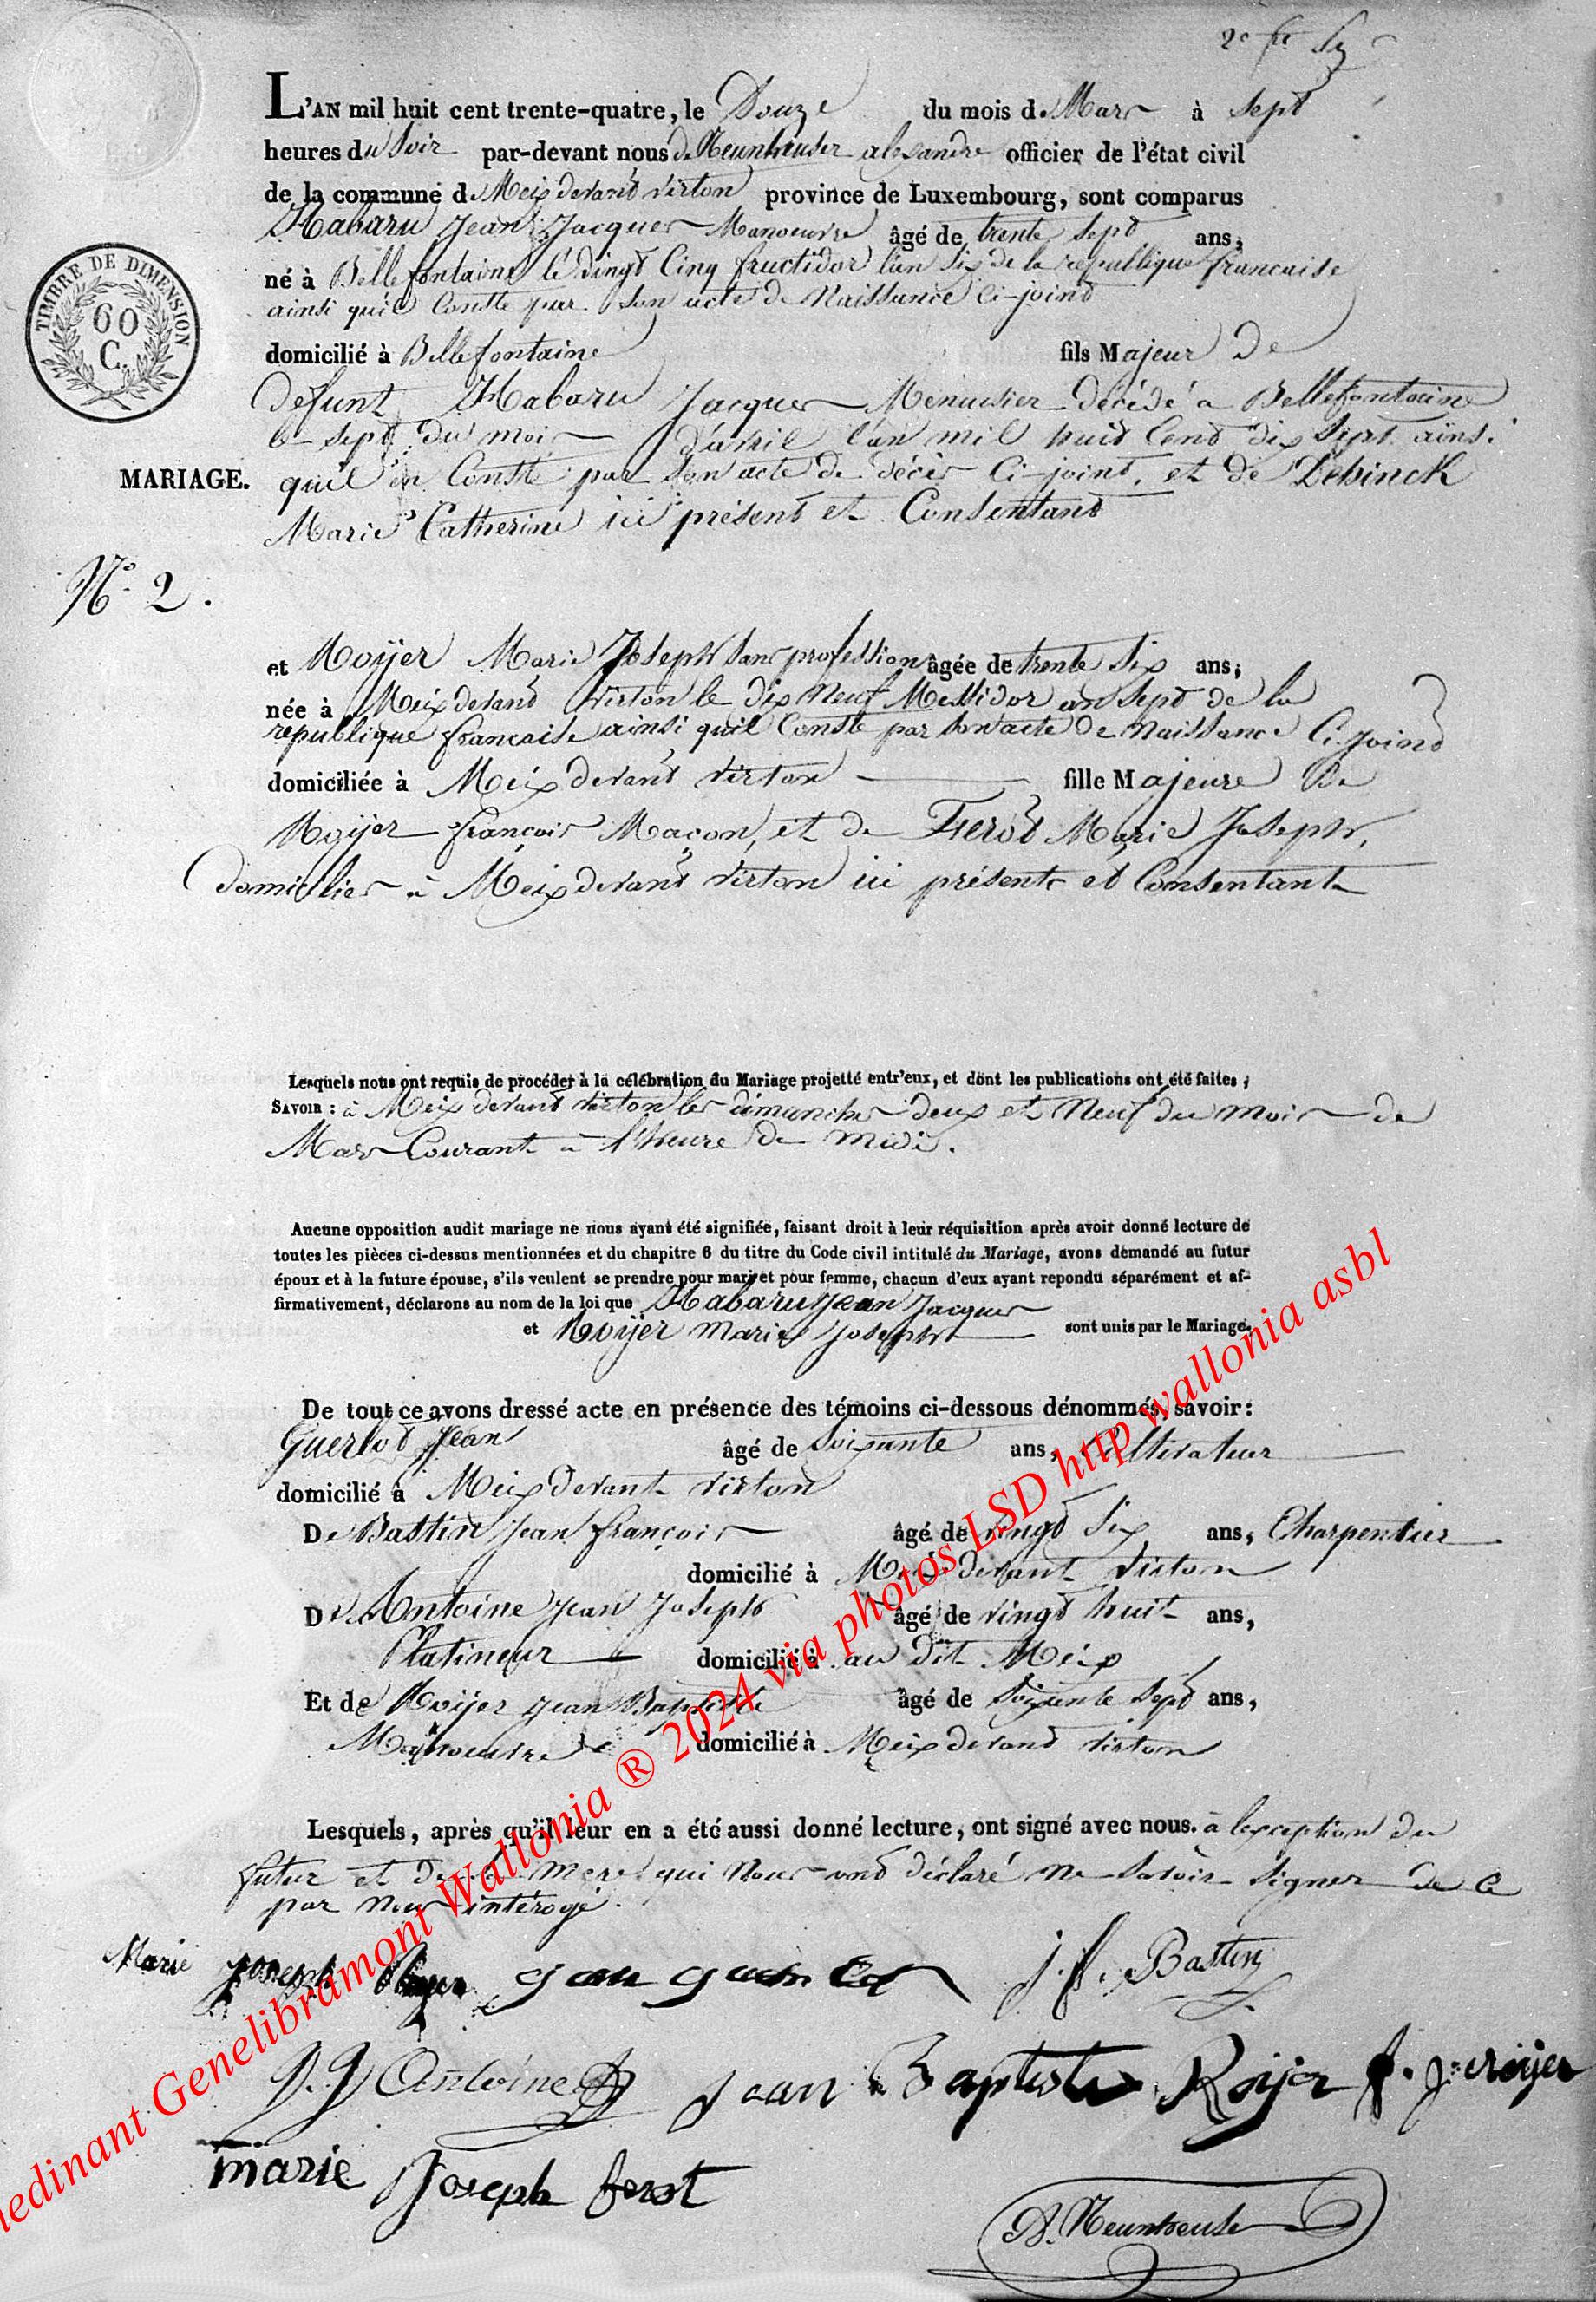 2e
L'AN mil huit cent trente-quatre, le Douze du mois de Mars à sept
heures du Soir par-devant nous de Neunheuser alexandre officier de l'état civil
de la commune de Meix devant virton province de Luxembourg, sont comparus
Habaru Jean Jacques Manoeuvre âgé de trente sept ans;
né à Bellefontaine le vingt Cinq fructidor l'an six de la republique francaise
ainsi qu'il Conste par son acte de Naissance Ci-joint
domicilié à Bellefontaine fils Majeur De
defunt Habaru Jacques Menuisier décédé a Bellefontaine
le sept du mois d'avril l'an mil huit Cent dix Sept ainsi
MARIAGE. quil en Conste par son acte de décès Ci-joint, et de Debinck
Marie Catherine ici présent et Consentant
N° 2.
et Roijer Marie Joseph sans profession âgée de trente Six ans;
née à Meix devant virton le dix Neuf Messidor an sept de la
republique francaise ainsi quil Conste par son acte De Naissance Ci-joint
domiciliée à Meix devant virton fille Majeure De
Roijer françois Maçon, et de Fierot Marie Joseph,
domiciliés à Meix devant virton ici présents et Consentant
Lesquels nous ont requis de procéder à la célébration du Mariage projetté entr'eux, et dont les publications ont été faites;
SAVOIR: à Meix devant virton les dimanches deux et Neuf du mois de
Mars Courant à l'heure de midi.
Aucune opposition audit mariage ne nous ayant été signifiée, faisant droit à leur réquisition après avoir donné lecture de
toutes les pièces ci-dessus mentionnées et du chapitre 6 du titre du Code civil intitulé du Mariage, avons demandé au futur
époux et à la future épouse, s'ils veulent se prendre pour mari et pour femme, chacun d'eux ayant repondu séparément et af-
firmativement, déclarons au nom de la loi que Habaru Jean Jacques
et Roijer Marie Joseph sont unis par le Mariage.
De tout ce avons dressé acte en présence des témoins ci-dessous dénommés, savoir:
Guerlot Jean âgé de Soixante ans, Cultivateur
domicilié à Meix Devant virton
De Bastin Jean françois âgé de vingt Six ans, Charpentier
domicilié à Meix devant virton
De Antoine Jean Joseph âgé de vingt huit ans,
Platineur domicilié à au dit Meix
Et de Roijer Jean Baptiste âgé de soixante sept ans,
Manoeuvre domicilié à Meix devant virton
Lesquels, après qu'il leur en a été aussi donné lecture, ont signé avec nous. à lexception du
futur et de sa mere qui Nous ont déclaré ne savoir signer de ce
par Nous intérogé.
Marie joseph Roijer jean guerlot j. f. Bastin
J. J. Antoine Jean Baptiste Roijer f. j. roijer
marie Joseph ferot
A. Neunheuser
TIMBRE DE DIMENSION
60
C.
nedinant Genelibramont Wallonia ® 2024 via photos LSD http wallonia asbl